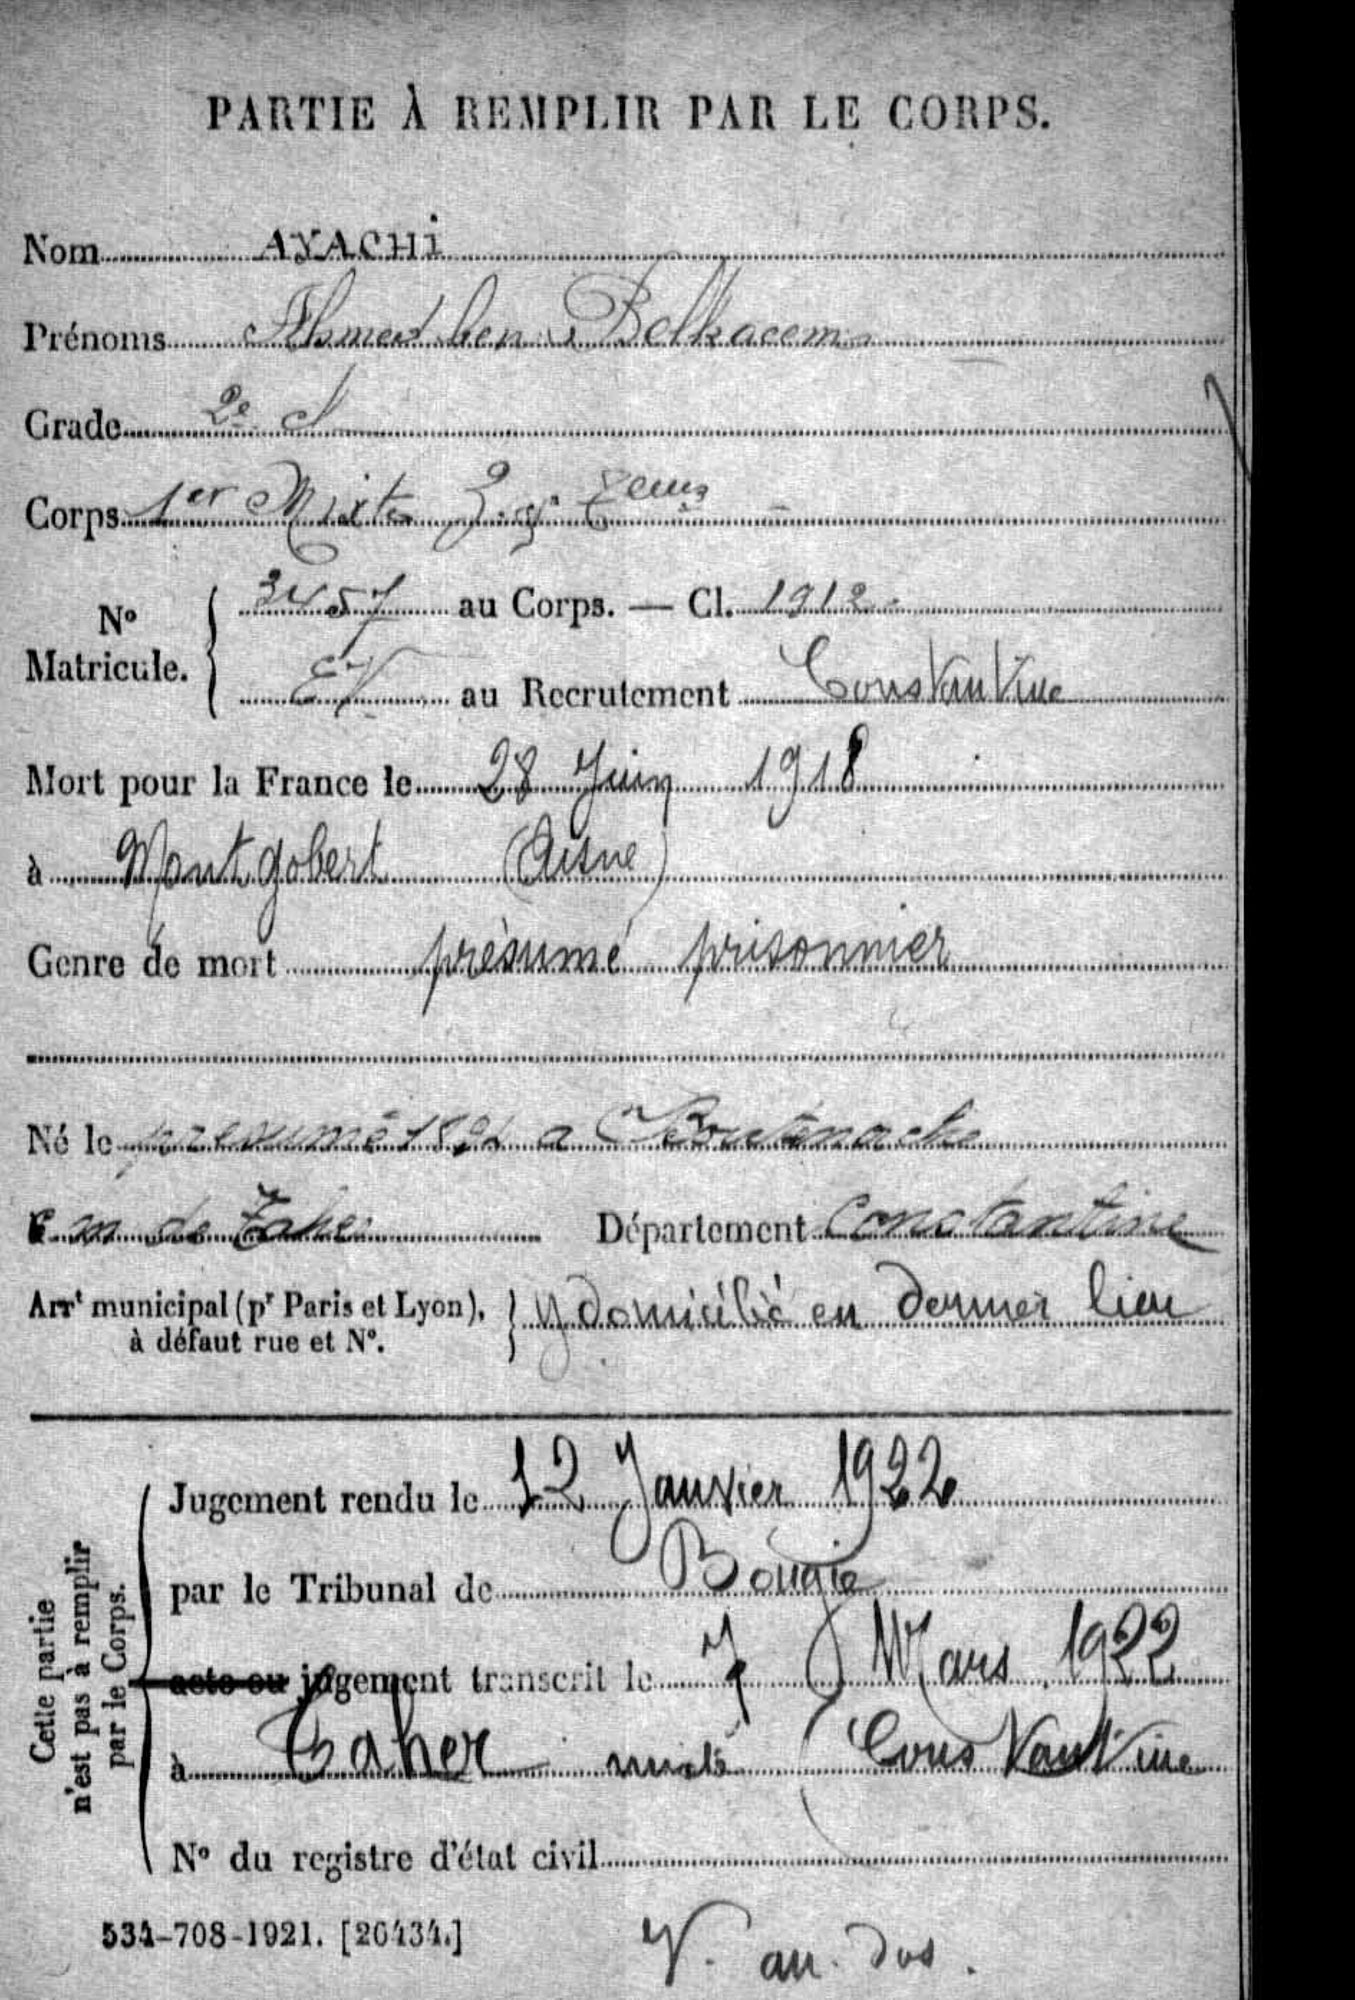 PARTIE À REMPLIR PAR LE CORPS.
Nom AYACHi
Prénoms Ahmed ben Belkacem
Grade 2e cl
Corps 1er Mixte
N° Matricule. 3457 au Corps. — Cl. 1912
EV au Recrutement Constantine
Mort pour la France le 28 Juin 1918
à Montgobert (Aisne)
Genre de mort présumé prisonnier
Né le présumé 1891 a
c m de Taher Département Constantine
Arrt municipal (pr Paris et Lyon), à défaut rue et N°. y domicilié en dernier lieu
Cette partie n'est pas à remplir par le Corps.
Jugement rendu le 12 Janvier 1922
par le Tribunal de Bougie
acte ou jugement transcrit le 7 Mars 1922
à Taher mixte (Constantine
N° du registre d'état civil
534-708-1921. [26434.]
V. au. dos.